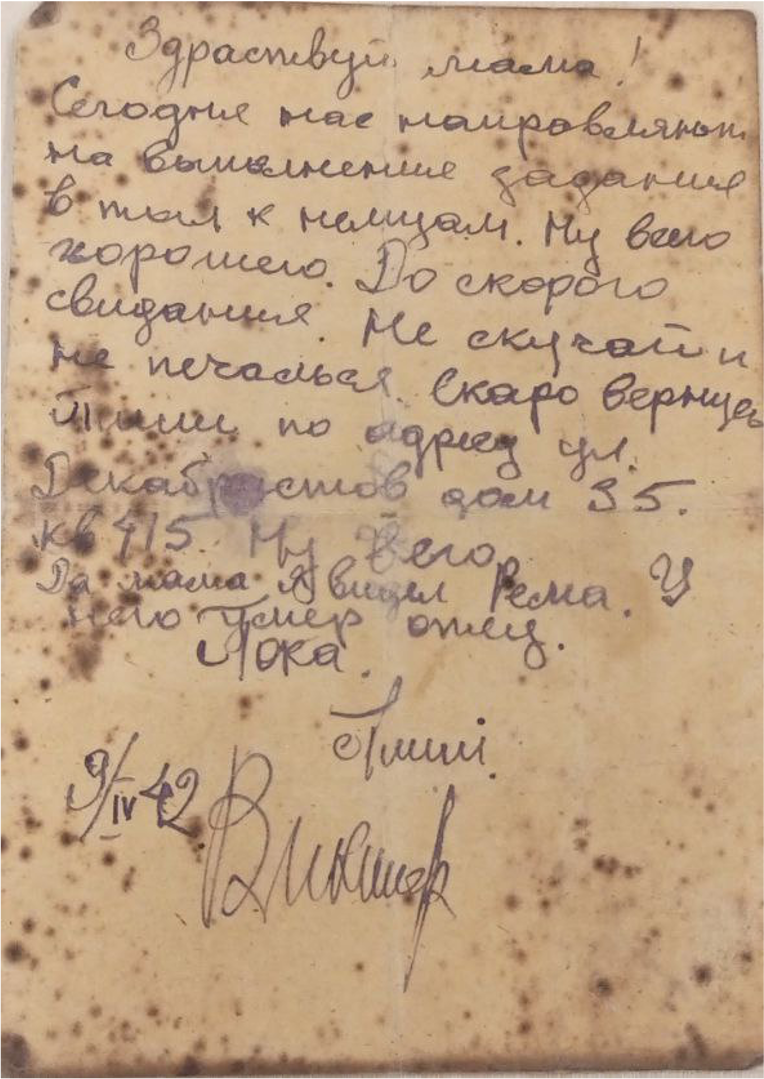 Здраствуй мама!
Сегодня нас направляют
на выполнение задания
в тыл к немцам. Ну всего
хорошего. До скорого
свидания. Не скучай и
не печалься. Скаро вернусь
Пиши по адресу ул.
Декабристов дом 35.
кв 415. Ну всего
Да мама я видел Рема. У
него умер отец.
Пока.
Пиши.
9/IV 42
Виктор